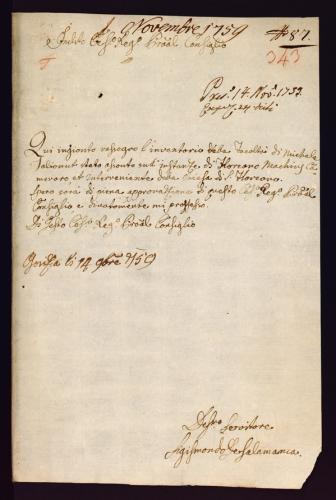 9 Novembre 1759
#87.
Inclito Ces:º Regº Prōal Consiglio
343
Pres: 14. Nov: 1759.
Qui ingionto rassegno l'inventario della facoltà di Michele
stato assonto sull'instanza di Floreano Ca-
meraro et interveniente della Chiesa di S. Floreano.
Spero sarà di piena approvatione di questo Ces: Regº Prōal
Consiglio e divotamente mi professo.
Di questo Ces: Regº Prōal Consiglio
Gorizia li 14 9bre 1759
Servitore
Sigismondo de Salamanca.